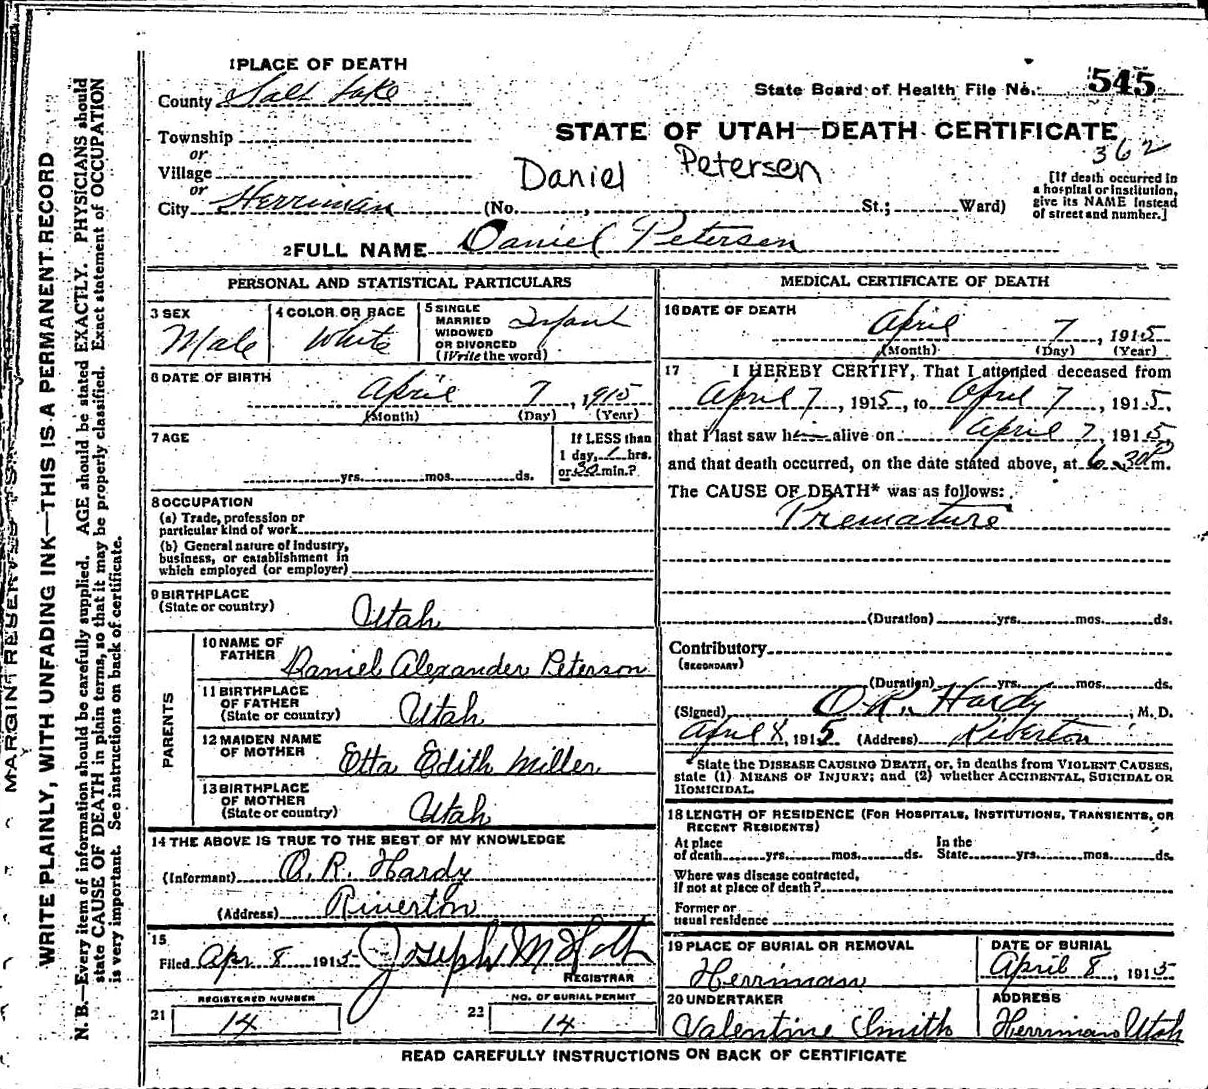 MARGIN RESERVED
WRITE PLAINLY, WITH UNFADING INK—THIS IS A PERMANENT RECORD
N. B.—Every item of information should be carefully supplied. AGE should be stated EXACTLY. PHYSICIANS should
state CAUSE OF DEATH in plain terms, so that it may be properly classified. Exact statement of OCCUPATION
is very important. See instructions on back of certificate.
1 PLACE OF DEATH
County Salt Lake
State Board of Health File No. 545
Township
STATE OF UTAH—DEATH CERTIFICATE
or
362
Village
Daniel Petersen
or
City Herriman (No. , St.; Ward)
[If death occurred in
a hospital or institution,
give its NAME instead
of street and number.]
2 FULL NAME Daniel Petersen
PERSONAL AND STATISTICAL PARTICULARS
3 SEX
Male
4 COLOR OR RACE
White
5 SINGLE
MARRIED
WIDOWED
OR DIVORCED
(Write the word)
Infant
6 DATE OF BIRTH
April 7, 1915
(Month) (Day) (Year)
7 AGE
yrs. mos. ds.
If LESS than
1 day, 1 hrs.
or 30 min.?
8 OCCUPATION
(a) Trade, profession or
particular kind of work
(b) General nature of industry,
business, or establishment in
which employed (or employer)
9 BIRTHPLACE
(State or country)
Utah
PARENTS
10 NAME OF
FATHER
Daniel Alexander Peterson
11 BIRTHPLACE
OF FATHER
(State or country)
Utah
12 MAIDEN NAME
OF MOTHER
Etta Edith Miller
13 BIRTHPLACE
OF MOTHER
(State or country)
Utah
14 THE ABOVE IS TRUE TO THE BEST OF MY KNOWLEDGE
(Informant) O. R. Hardy
(Address) Riverton
15
Filed Apr 8 1915 Joseph M Holt
REGISTRAR
REGISTERED NUMBER
21 14
NO. OF BURIAL PERMIT
22 14
MEDICAL CERTIFICATE OF DEATH
16 DATE OF DEATH
April 7, 1915
(Month) (Day) (Year)
17 I HEREBY CERTIFY, That I attended deceased from
April 7, 1915, to April 7, 1915,
that I last saw h alive on April 7, 1915,
and that death occurred, on the date stated above, at 6:30 P m.
The CAUSE OF DEATH* was as follows:
Premature
(Duration) yrs. mos. ds.
Contributory
(SECONDARY)
(Duration) yrs. mos. ds.
(Signed) O. R. Hardy, M. D.
April 8, 1915 (Address) Riverton
*State the DISEASE CAUSING DEATH, or, in deaths from VIOLENT CAUSES,
state (1) MEANS OF INJURY; and (2) whether ACCIDENTAL, SUICIDAL OR
HOMICIDAL.
18 LENGTH OF RESIDENCE (FOR HOSPITALS, INSTITUTIONS, TRANSIENTS, OR
RECENT RESIDENTS)
At place In the
of death yrs. mos. ds. State yrs. mos. ds.
Where was disease contracted,
if not at place of death?
Former or
usual residence
19 PLACE OF BURIAL OR REMOVAL
Herriman
DATE OF BURIAL
April 8, 1915
20 UNDERTAKER
Valentine Smith
ADDRESS
Herriman Utah
READ CAREFULLY INSTRUCTIONS ON BACK OF CERTIFICATE